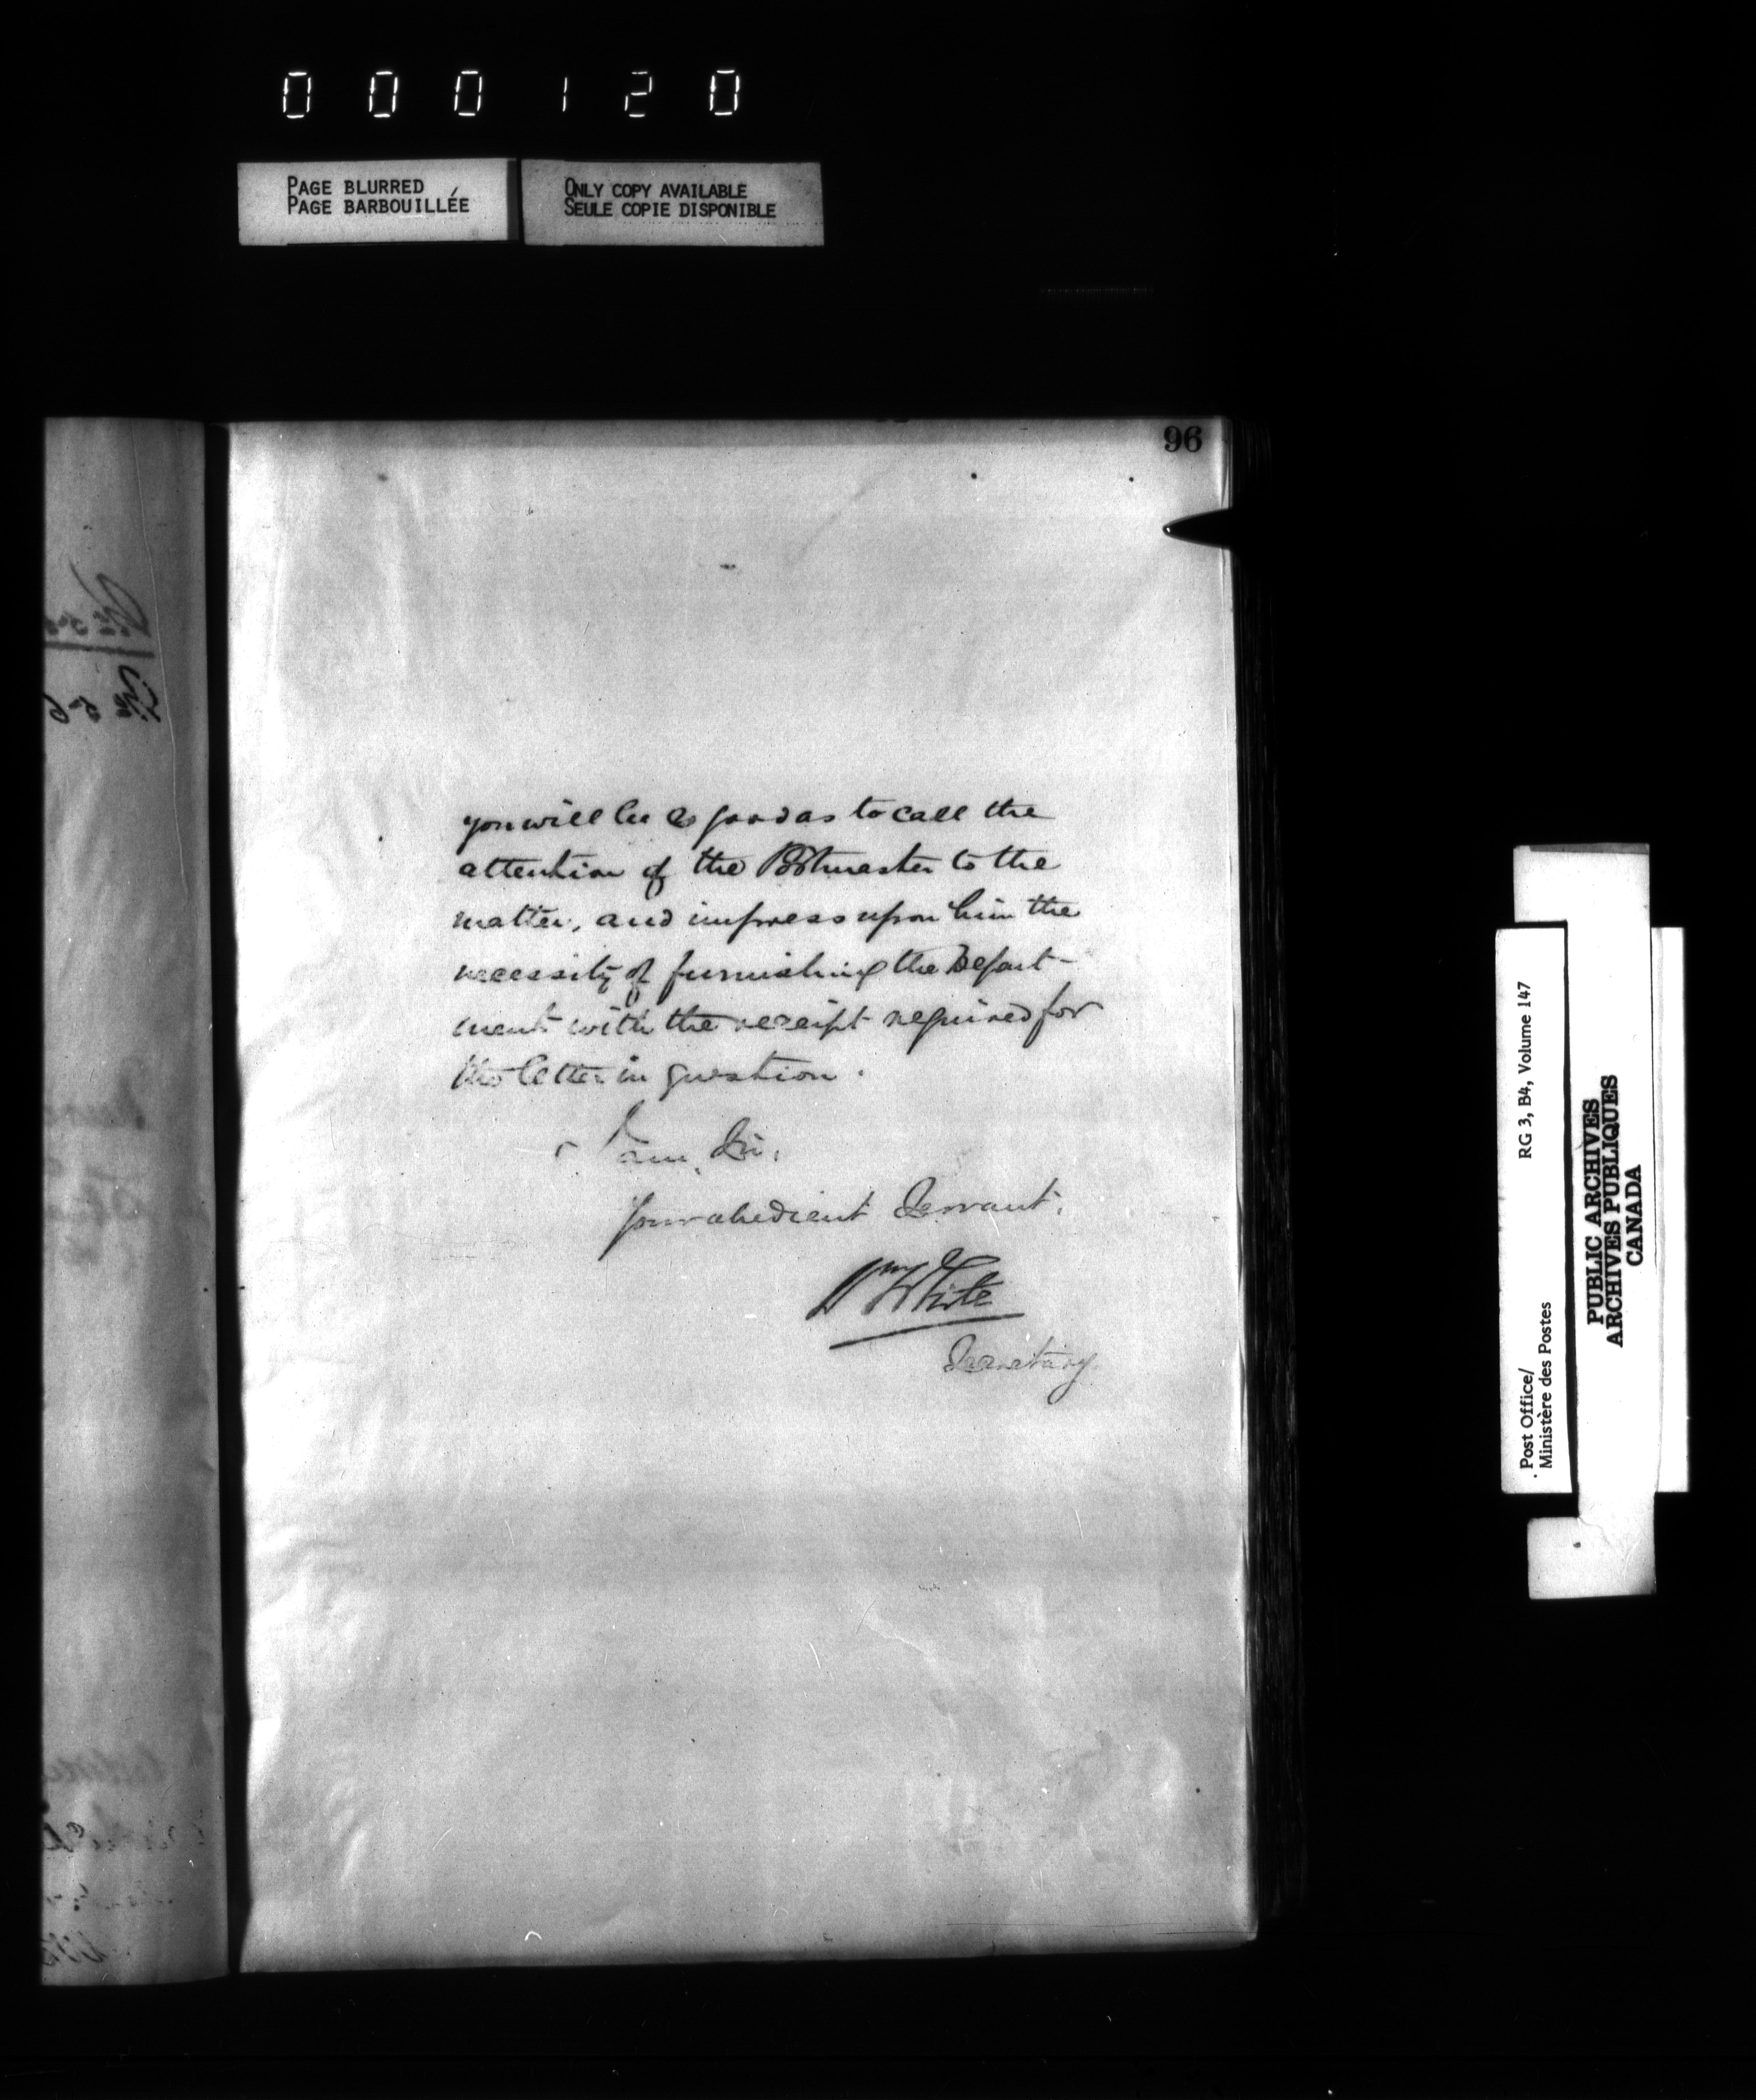 000120
PAGE BLURRED
PAGE BARBOUILLÉE
ONLY COPY AVAILABLE
SEULE COPIE DISPONIBLE
96
you will be so good as to call the
attention of the Postmaster to the
matter, and impress upon him the
necessity of furnishing the Depart-
ment with the receipt required for
the letter in question.
I am, Sir,
Your obedient Servant,
Wm White
Secretary.
Post Office/
Ministère des Postes
RG 3, B4, Volume 147
PUBLIC ARCHIVES
ARCHIVES PUBLIQUES
CANADA